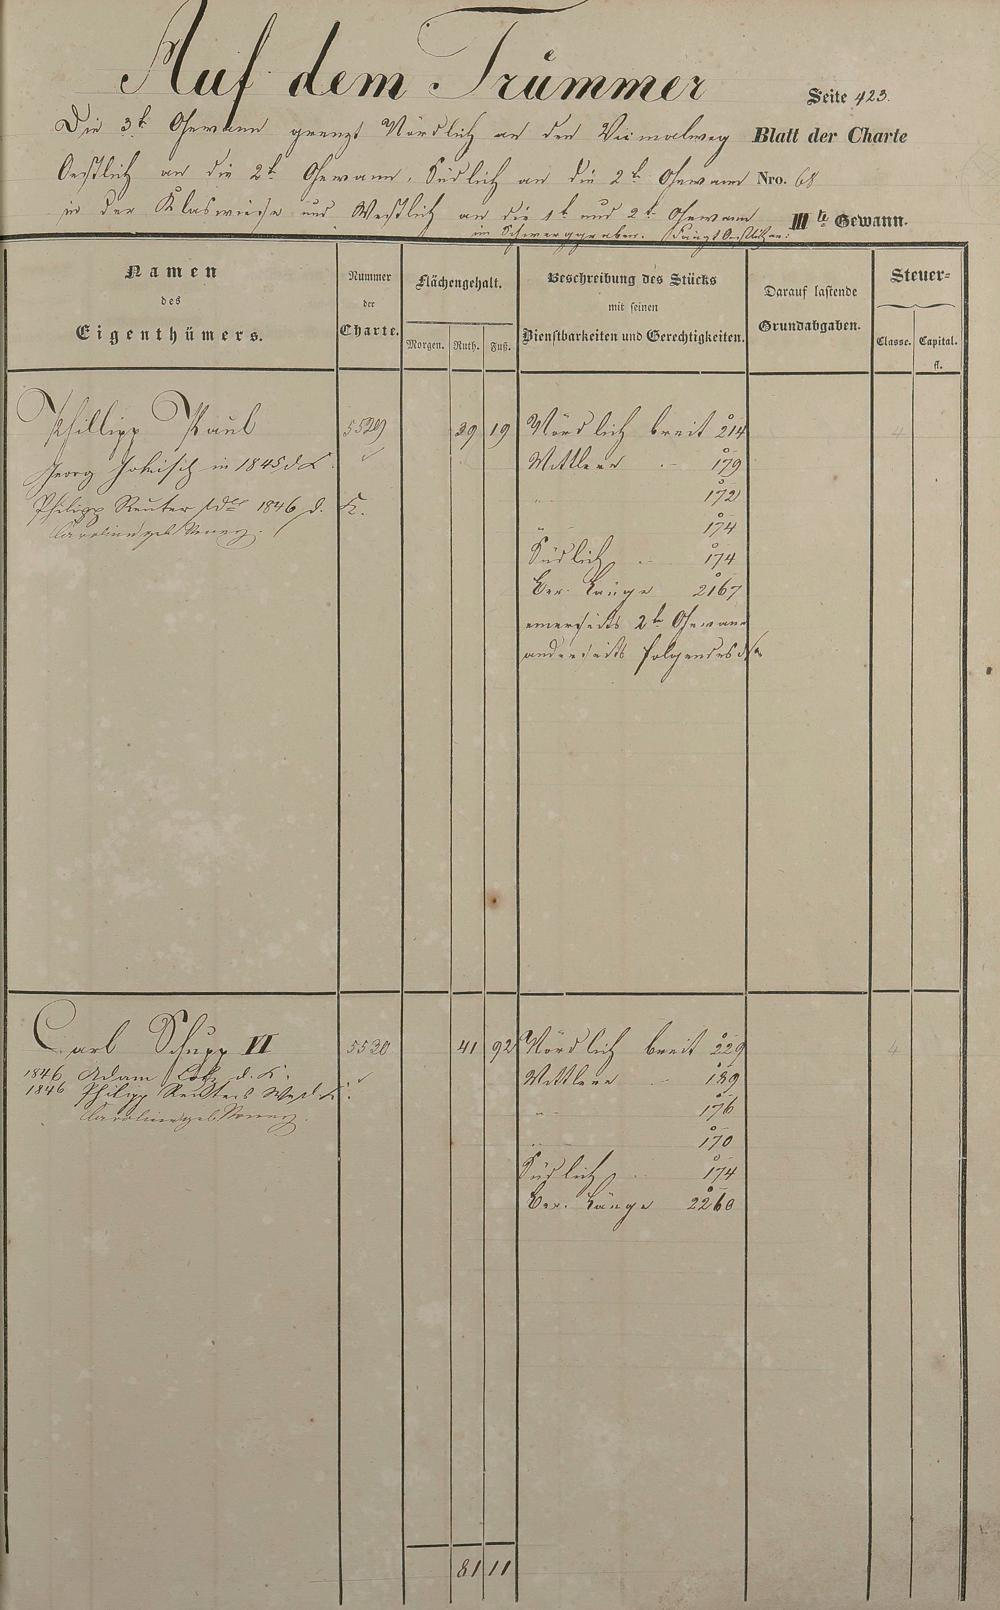 Auf dem Trümmer
Seite 423.
Die 3te Gewann grenzt Nördlich an den Viemalweg
Blatt der Charte
Oestlich an die 2te Gewann, Südlich an die 2te Gewann
Nro. 68
in der Klaswiese und Westlich an die 1te und 2te Gewann
III te Gewann.
im
Namen
des
Eigenthümers.
Nummer
der
Charte.
Flächengehalt.
Morgen. Ruth. Fuß.
Beschreibung des Stücks
mit seinen
Dienstbarkeiten und Gerechtigkeiten.
Darauf lastende
Grundabgaben.
Steuer-
Classe. Capital.
fl.
Phillipp Paul 5529 39 19 Nördlich breit 214 4
Georg in 1845 d. K. Mittlere 179
172
Philipp Reuter 1846 d. K.
Caroline geb.
174
Südlich 174
Ber. Länge 2167
einerseits 2te Gewann
anderseits folgendes
Carl Schupp VI 5530 41 92 Nördlich breit 229 4
1846 Adam d. K. Mittlere 189
1846 Philipp Reuters
176
Caroline geb.
170
Südlich 174
Ber. Länge 2260
81 11